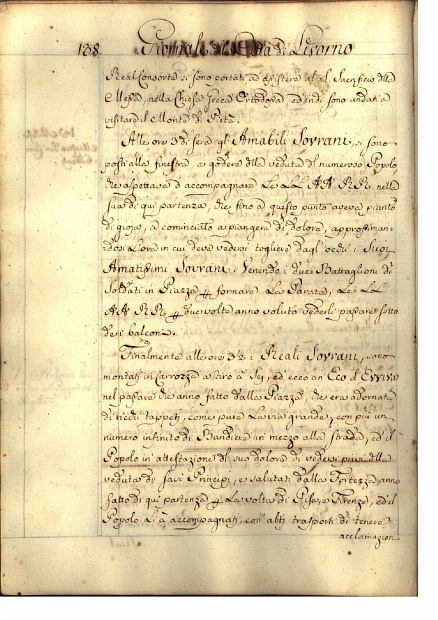 138. Giornale di Città di Livorno
Real Consorte si sono portati ad assistere al Sacrificio della
Messa, nella Chiesa Greca Ortodossa ed indi sono andati a
visitare il Monte di Pietà.
Alle ore 3 di sera gl' Amabili Sovrani, si sono
posti alle finestra, a godere della veduta del numeroso Popolo,
che aspettava d'accompagnare Le LL. AA. RR. nella
sua di qui partenza, che fino a questo punto aveva pianto
di gioja, e cominciato a piangere di dolore, approssiman=
dosi l'ora in cui deve vedersi togliere dagl' occhi i Suoi
Amatissimi Sovrani. Venendo i due Battaglioni di
Soldati in Piazza p formare La Parata, Le LL.
AA. RR. p due volte anno voluto vederli passare sotto
de' balconi.
Finalmente alle ore 3½ i Reali Sovrani, sono
montati in Carrozza a tiro a Sei, ed ecco un Eco d'Evviva
nel passare che anno fatto dalla Piazza, che era adornata
di ricchi tappeti, come pure La via grande, con più un
numero infinito di Bandiere in mezzo alla strada, ed il
Popolo in attestazione del suo dolore di vedersi priva della
veduta di Suoi Principi, e salutati dalla Fortezza anno
fatto di qui partenza p La volta di Pisa, e Firenze, ed il
Popolo li à accompagnati, con alti trasporti di tenere
acclamazion